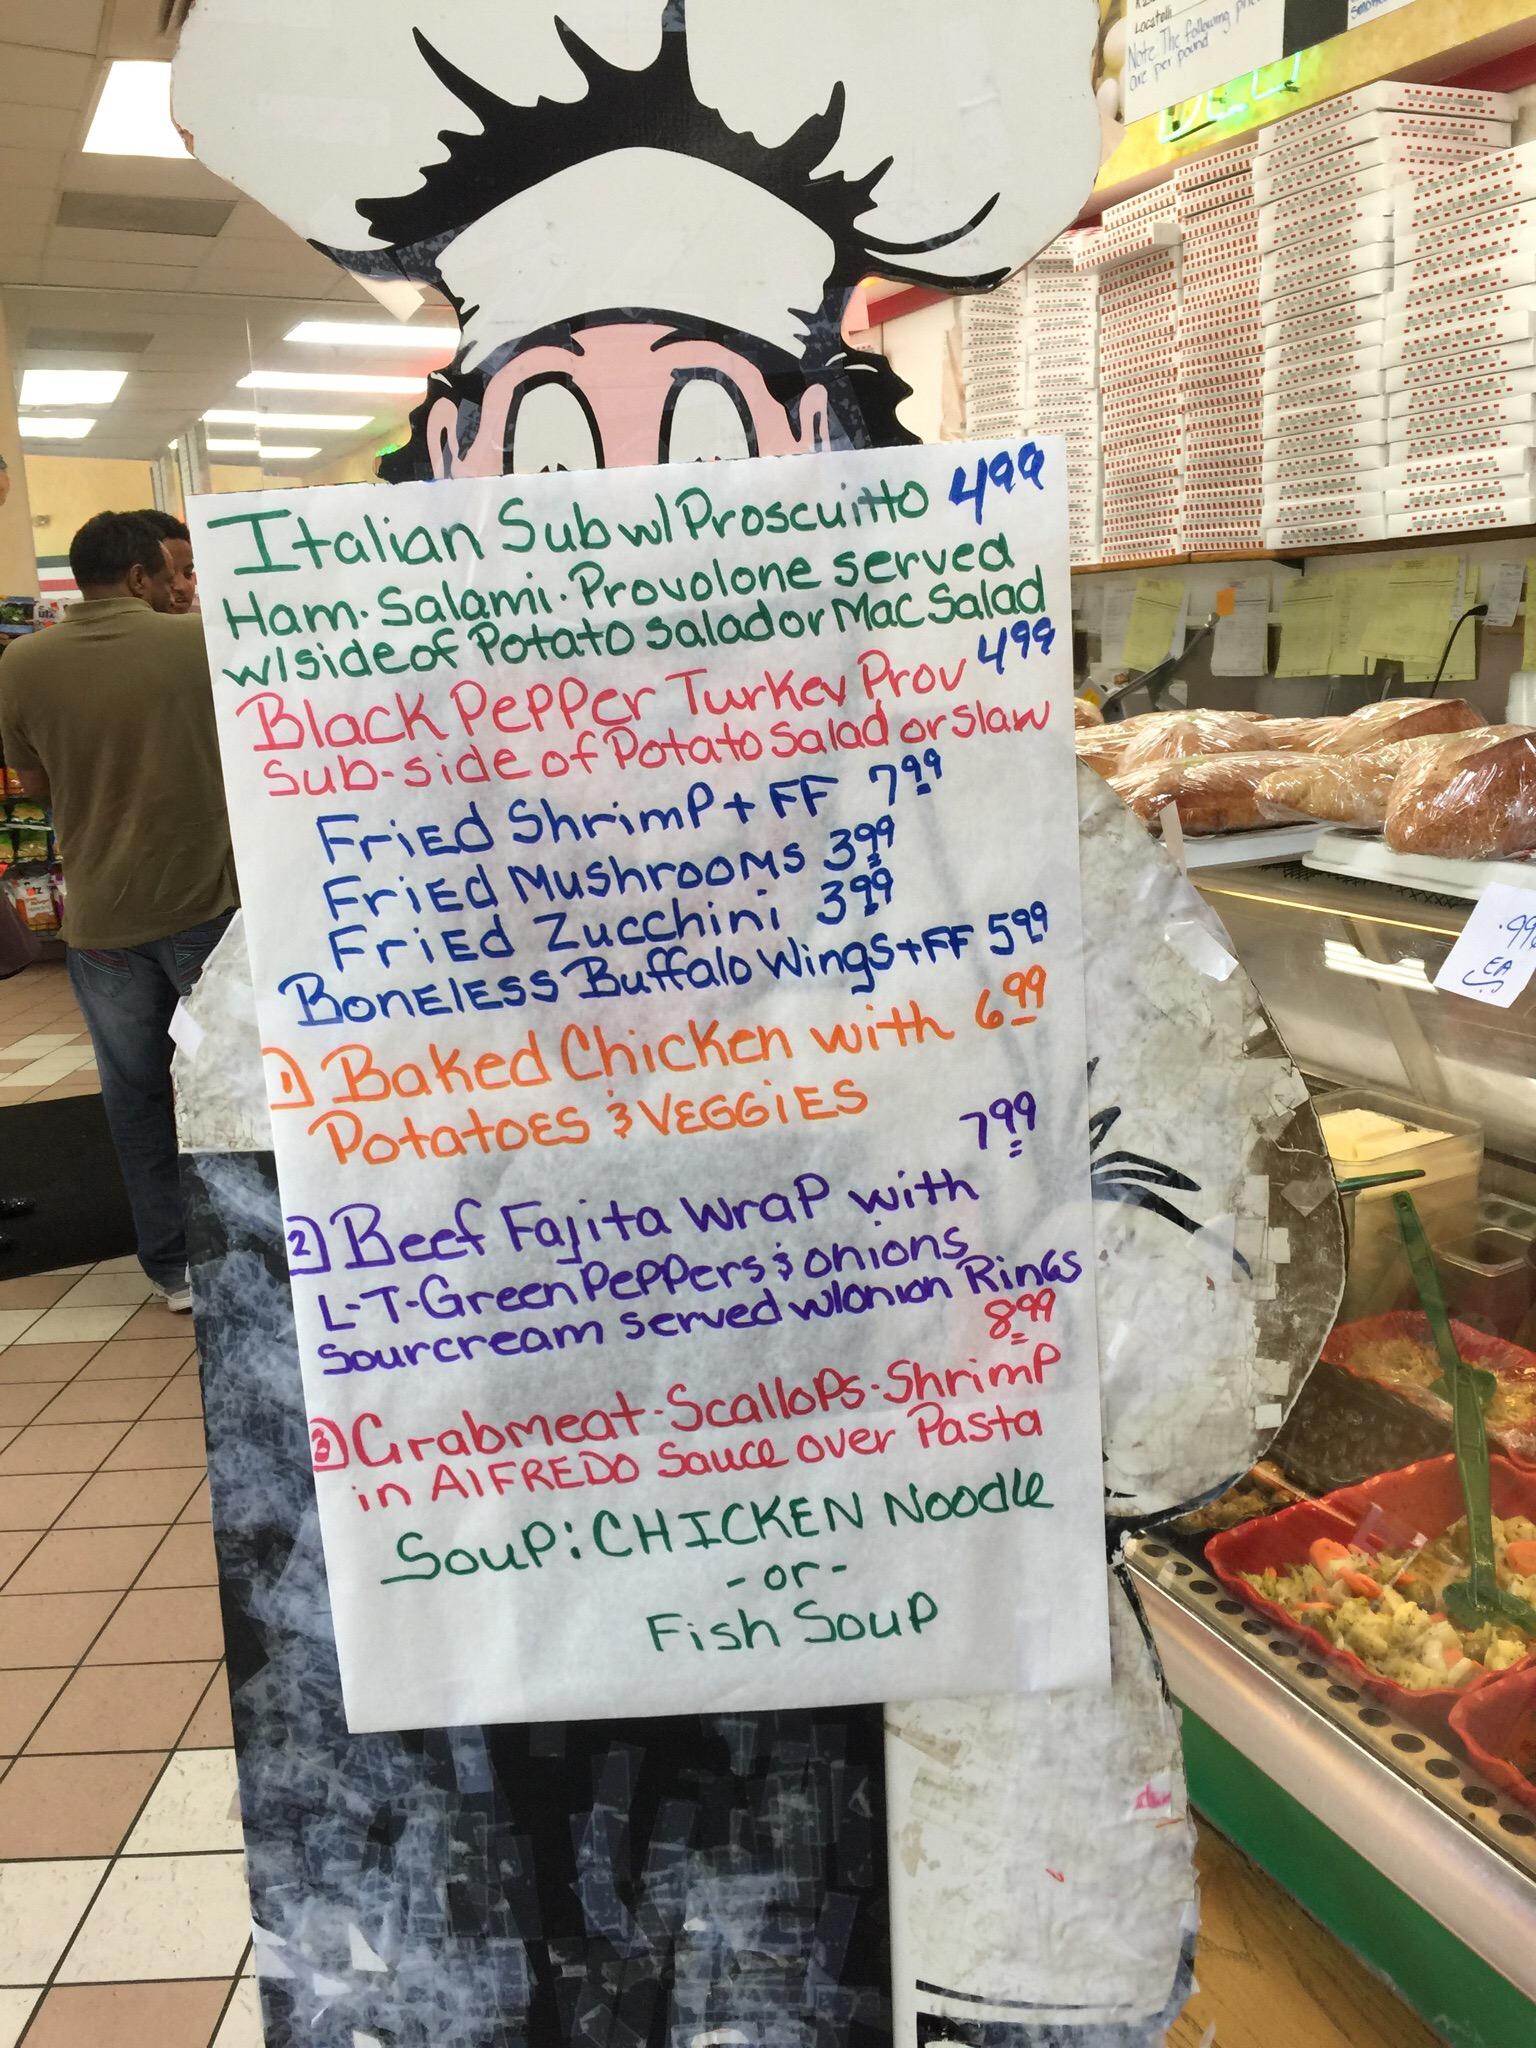 Locatelli
Note The following
are per pound
DELI
Italian Sub w/ Proscuitto 4.99
Ham. Salami. Provolone served
w/side of Potato salad or Mac Salad
Black Pepper Turkey Prov 4.99
Sub-side of Potato Salad or Slaw
Fried Shrimp + FF 7.99
Fried Mushrooms 3.99
Fried Zucchini 3.99
Boneless Buffalo Wings + FF 5.99
1) Baked Chicken with 6.99
Potatoes & Veggies
7.99
2) Beef Fajita Wrap with
L-T-Green Peppers & onions
Sourcream served w/onion Rings
8.99
3) Crabmeat-Scallops-Shrimp
in AlFREDO Sauce over Pasta
Soup: CHICKEN Noodle
-or-
Fish Soup
.99¢
EA